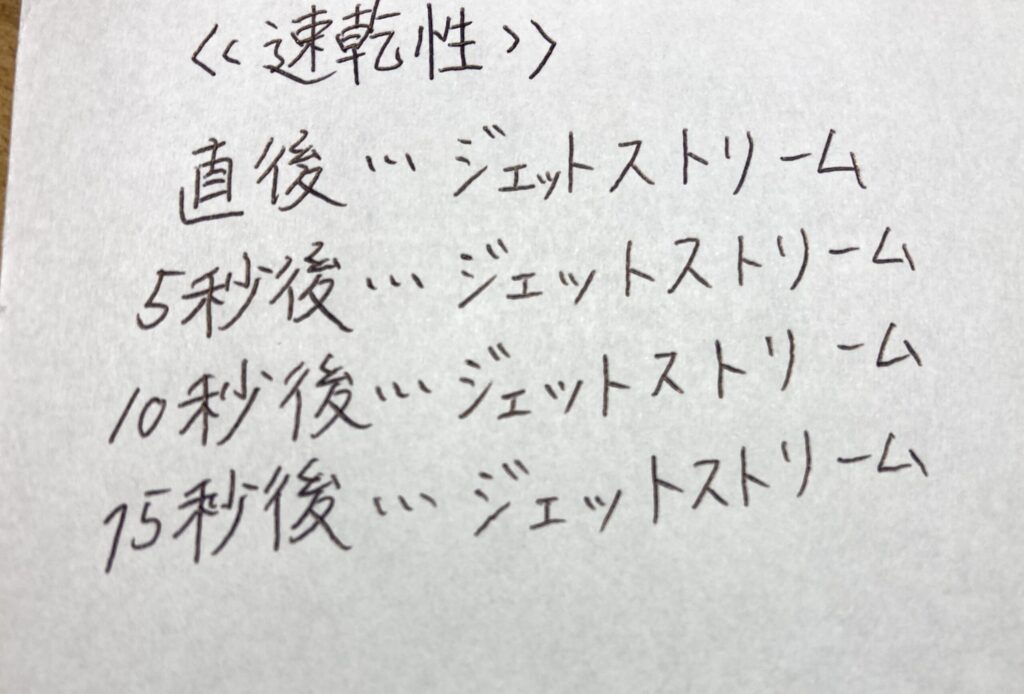 <<速乾性>>
直後…ジェットストリーム
5秒後…ジェットストリーム
10秒後…ジェットストリーム
15秒後…ジェットストリーム